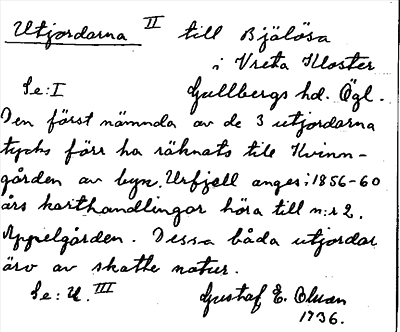 Utjordarna II till Bjälösa
i Vreta Kloster
Se: I Gullbergs hd. Ögl.
Den först nämnda av de 3 utjordarna
tycks förr ha räknats till Kvinn-
gården av byn. Urfjell anges i 1856-60
års karthandlingar höra till n:r 2.
Appelgården. Dessa båda utjordar
äro av skatte natur.
Se: U. III Gustaf E. Olsson
1936.